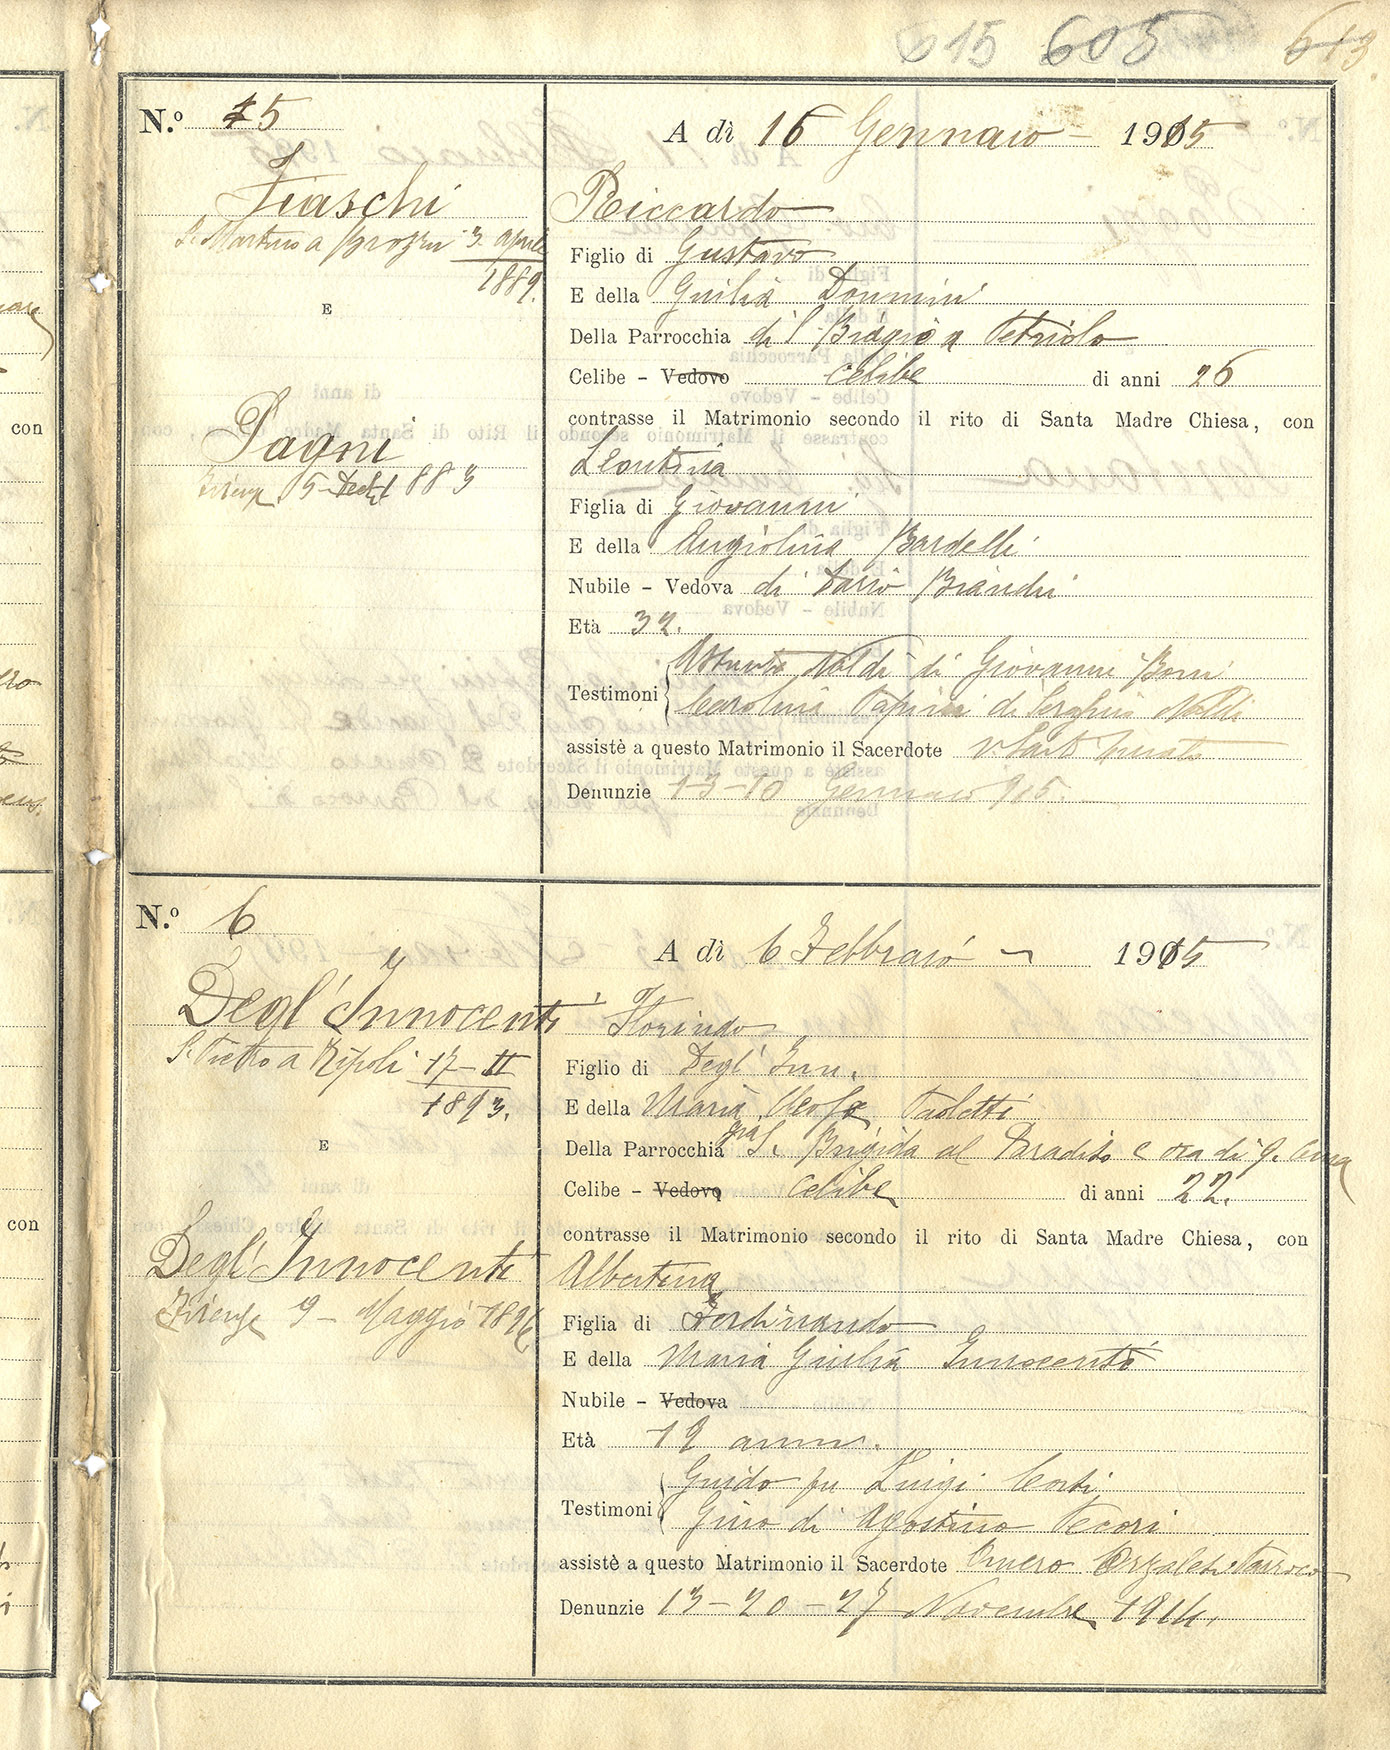 615 605 613
N.º 5
A dì 16 Gennaio 1915
Fiaschi
S. Martino a Brozzi 3 aprile
1889.
E
Riccardo
Figlio di Gustavo
E della Giulia Donnini
Della Parrocchia di S. Biagio a Petriolo
Celibe - Vedovo celibe di anni 26
contrasse il Matrimonio secondo il rito di Santa Madre Chiesa, con
Pagni
Firenze 5 1883
Leontina
Figlia di Giovanni
E della Angiolina Bardelli
Nubile - Vedova di Dario Bianchi
Età 32.
Testimoni
Assunta Naldi di Giovanni Boni
Carolina Papini di Naldi
assistè a questo Matrimonio il Sacerdote
Denunzie 1-3-10 Gennaio 915.
N.º 6
A dì 6 Febbraio 1915
Degl'Innocenti
S. Piero a Ripoli 17-II
1893.
E
Florindo
Figlio di Degl'Inn.
E della Maria Paoletti
Della Parrocchia S. Brigida al Paradiso e ora di q. Cura
Celibe - Vedovo celibe di anni 22.
contrasse il Matrimonio secondo il rito di Santa Madre Chiesa, con
Degl'Innocenti
Firenze 9 - Maggio 1896
Albertina
Figlia di Ferdinando
E della Maria Giulia Innocenti
Nubile - Vedova
Età 19 anni.
Testimoni
Guido fu Luigi Conti
Gino di Agostino Pecori
assistè a questo Matrimonio il Sacerdote Omero Orzalesi Parroco
Denunzie 13-20-27 Novembre 1914.
con
con